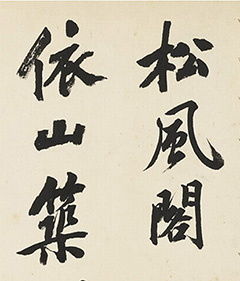 松風閣
依山築